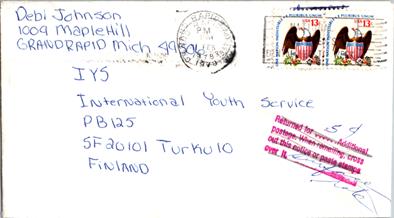 Debi Johnson
1009 Maple Hill
GRANDRAPID Mich
PM
E PLURIBUS UNUM
13c
E PLURIBUS UNUM
13c
IYS
International Youth Service
PB 125
SF 20101 Turku 10
FINLAND
Returned for Additional
postage. When remailing, cross
out this notice or paste stamps
over it.